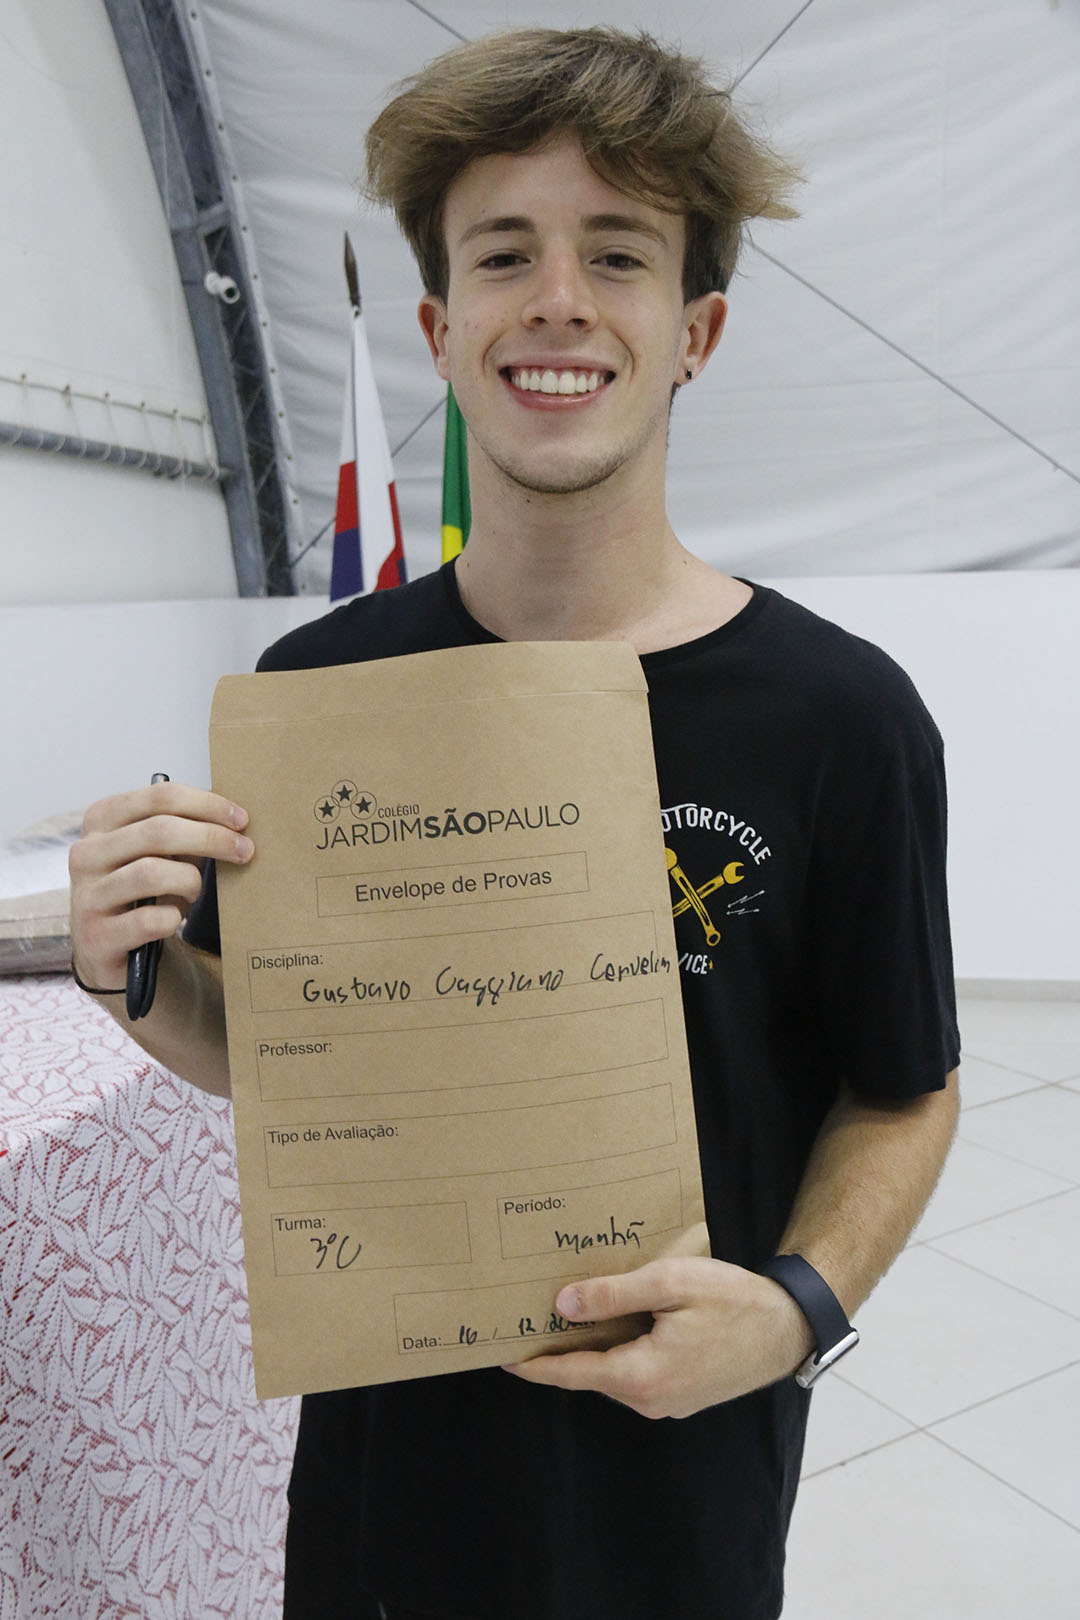 COLÉGIO
JARDIMSÃOPAULO
Envelope de Provas
Disciplina:
Gustavo Caggiano Cervelin
Professor:
Tipo de Avaliação:
Turma:
3ºC
Período:
manhã
Data: 16 / 12 /
OTORCYCLE
VICE